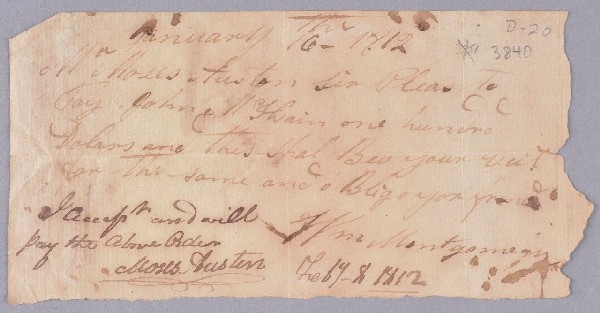 D-20
3840
January the 16 - 1812
Mr Moses Austin sir Pleas to
Pay John McKain one hundred
Dolars and this shal Bee your
for the same and oblige your frend
I accept and will
pay the Above Order
Moses Austin
Wm Montgomery
Feby 8 1812